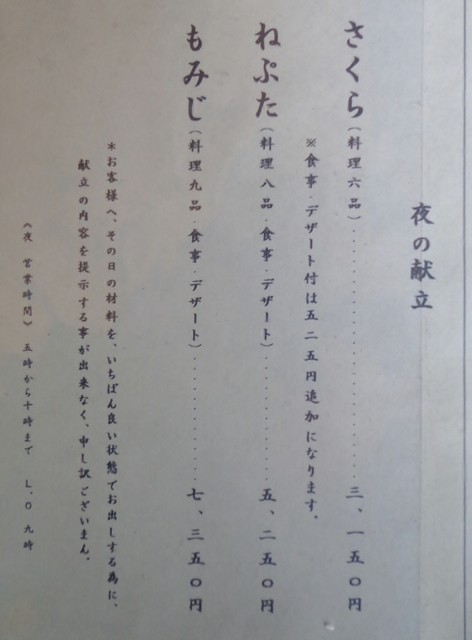 夜の献立
さくら（料理六品）………………………三、一五〇円
※食事・デザート付は五二五円追加になります。
ねぷた（料理八品・食事・デザート）…………五、二五〇円
もみじ（料理九品・食事・デザート）…………七、三五〇円
＊お客様へ、その日の材料を、いちばん良い状態でお出しする為に、
献立の内容を提示する事が出来なく、申し訳ございまん。
（夜　営業時間）　五時から十時まで　L.O　九時